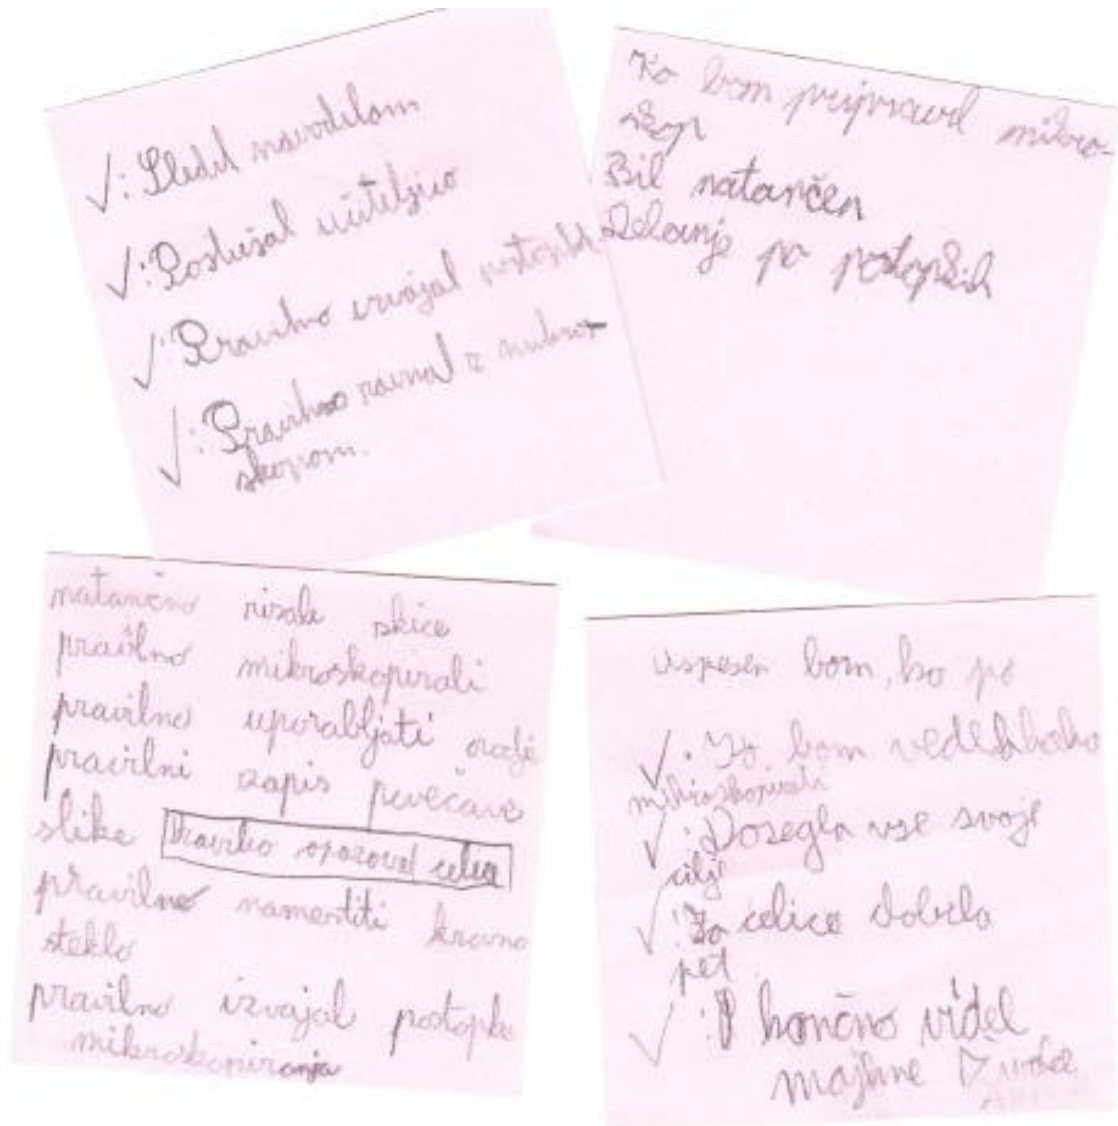 ✓: Sledil navodilom
✓: Poslušal učiteljico
✓: Pravilno izvajal postopke
✓: Pravilno ravnal z mikro-
skopom.
Ko bom pripravil mikro-
skop
Bil natančen
Delanje po postopkih
natančno risale skice
pravilno mikroskopirali
pravilno uporabljati orodje
pravilni zapis povečave
slike Pravilno opazoval celice
pravilno namestiti krovno
steklo
pravilno izvajal postopke
mikroskopiranja
uspesen bom, ko po
✓: Ko bom vedel kako
mikroskopirati
✓: Dosegla vse svoje
cilje
✓: Za celice dobila
pet
✓: končno videl
majhne